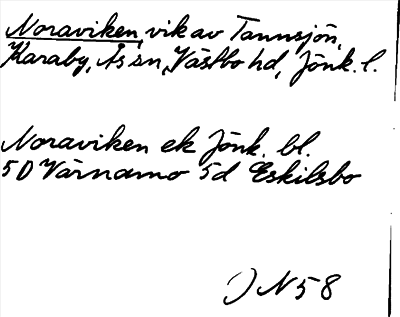 Noraviken, vik av Tannsjön,
Karaby, Ås sn, Västbo hd, Jönk. l.
Noraviken ek Jönk. bl.
5D Värnamo 5d Eskilsbo
) N 58